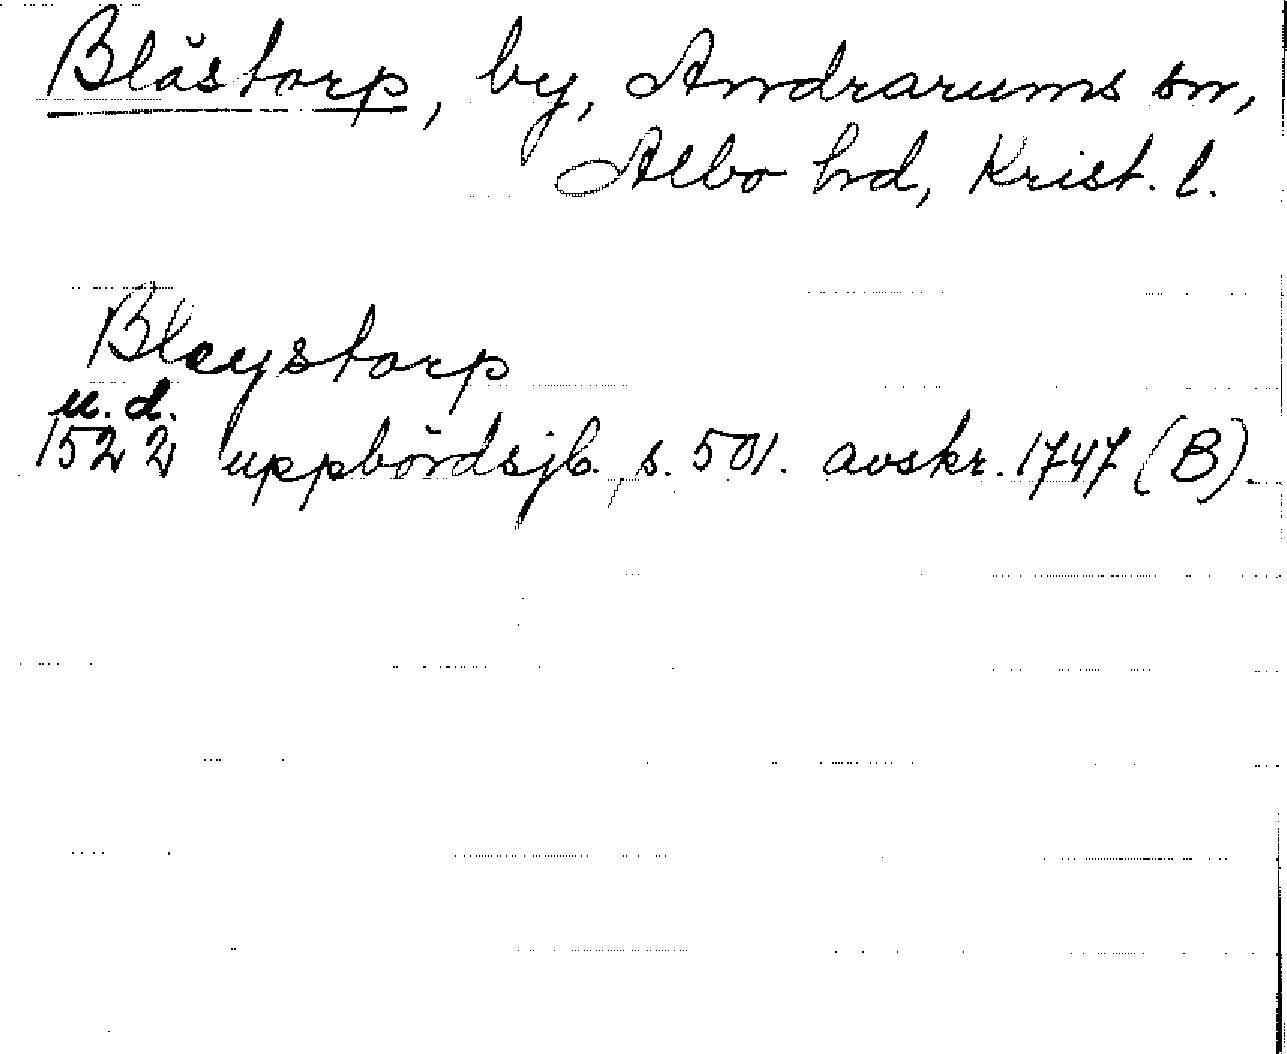 Blåstorp, by, Andrarums sn,
Albo hd, Krist. l.
Bleystorp
u. d.
1522 uppbördsjb., s. 501. avskr. 1747 (B).